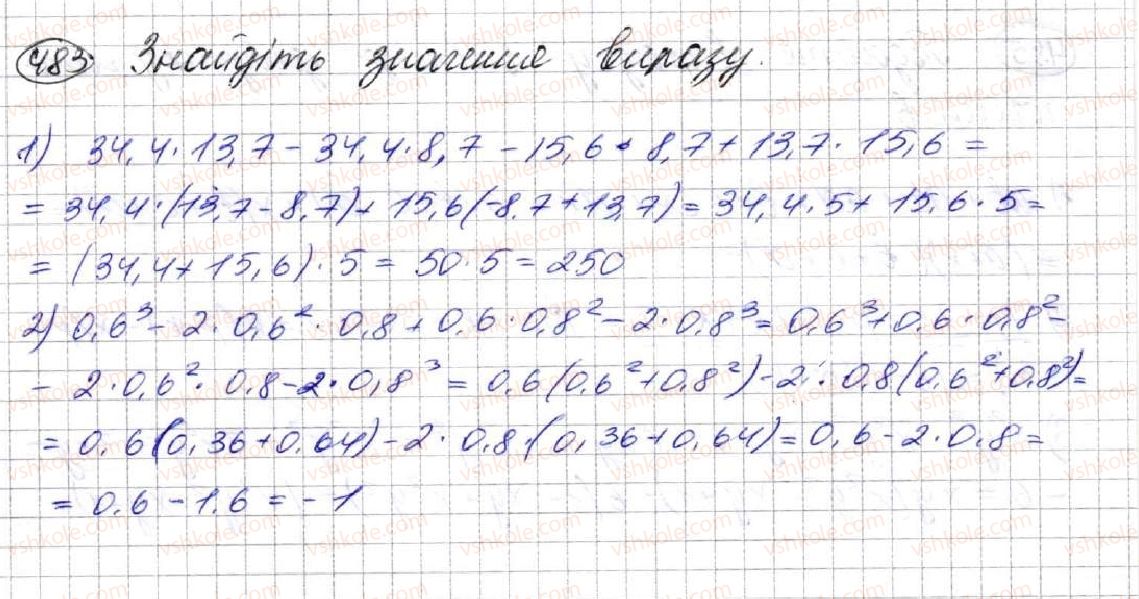 483 Знайдіть значення виразу.
1) 34,4·13,7 - 34,4·8,7 - 15,6·8,7 + 13,7·15,6 =
= 34,4·(13,7 - 8,7) + 15,6(-8,7 + 13,7) = 34,4·5 + 15,6·5 =
= (34,4 + 15,6)·5 = 50·5 = 250
2) 0,6³ - 2·0,6²·0,8 + 0,6·0,8² - 2·0,8³ = 0,6³ + 0,6·0,8² -
- 2·0,6²·0,8 - 2·0,8³ = 0,6(0,6² + 0,8²) - 2·0,8(0,6² + 0,8²) =
= 0,6(0,36 + 0,64) - 2·0,8·(0,36 + 0,64) = 0,6 - 2·0,8 =
= 0,6 - 1,6 = -1